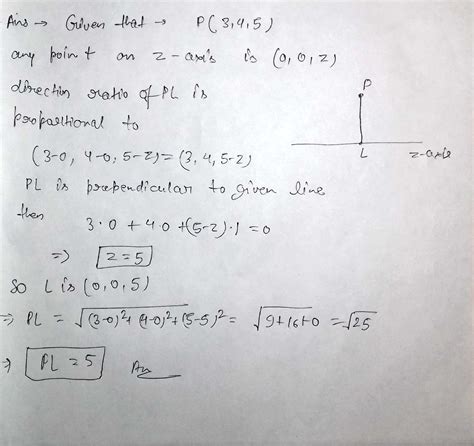 Ans → Given that → P(3,4,5)
any point on z-axis is (0,0,z)
direction ratio of PL is
proportional to
(3-0, 4-0, 5-z) = (3, 4, 5-z)
P
L
z-axis
PL is prependicular to given line
then
3·0 + 4·0 + (5-z)·1 = 0
⇒ z = 5
So L is (0,0,5)
⇒ PL = √(3-0)²+(4-0)²+(5-5)² = √9+16+0 = √25
⇒ PL = 5 An